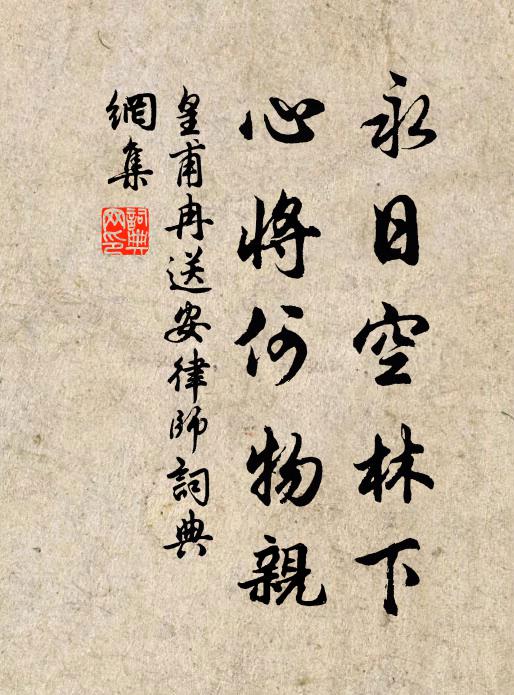 永日空林下
心將何物親
皇甫冉送安律師詞典
網集
詞典網印